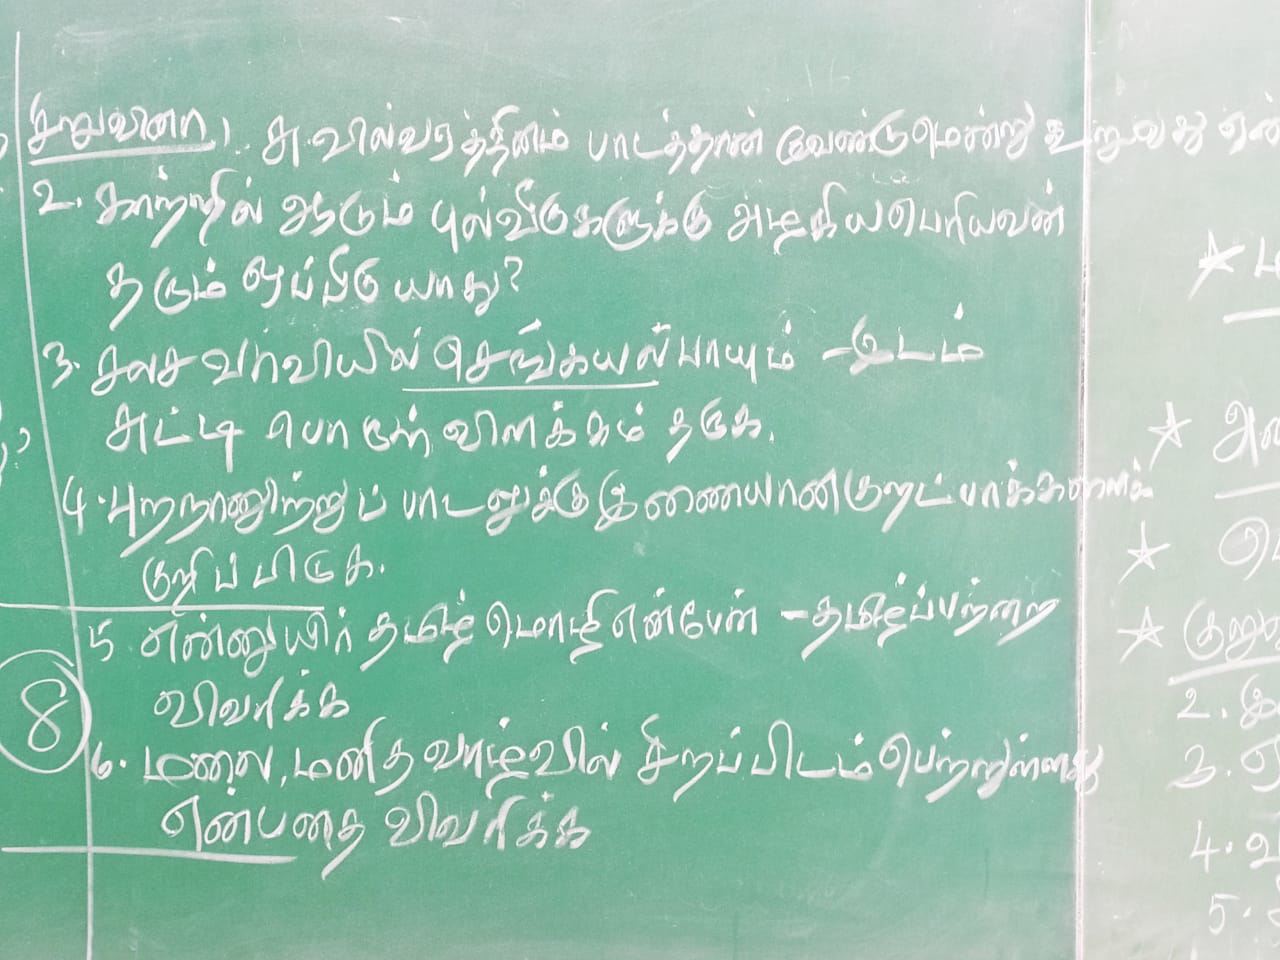 சிறுவினா 1. சு.வில்வரத்தினம் பாடத்தான் வேண்டுமென்று கூறுவது ஏன்
2. காற்றில் ஆடும் புல்வீடுகளுக்கு அழகியபெரியவன்
தரும் ஒப்பீடு யாது?
3. சலச வாவியில் செங்கயல் பாயும் - இடம்
சுட்டி பொருள் விளக்கம் தருக.
4. புறநானூற்றுப் பாடலுக்கு இணையான குறட்பாக்களைக்
குறிப்பிடுக.
5. என்னுயிர் தமிழ் மொழி என்பேன் - தமிழ்ப்பற்றை
விவரிக்க
8
6. மலை, மனித வாழ்வில் சிறப்பிடம் பெற்றுள்ளது
என்பதை விவரிக்க
2.
3.
4.
5.